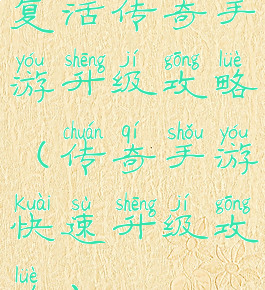 复活传奇手
yóu shēng jí gōng lüè
游升级攻略
chuán qí shǒu yóu
（传奇手游
kuài sù shēng jí gōng
快速升级攻
lüè